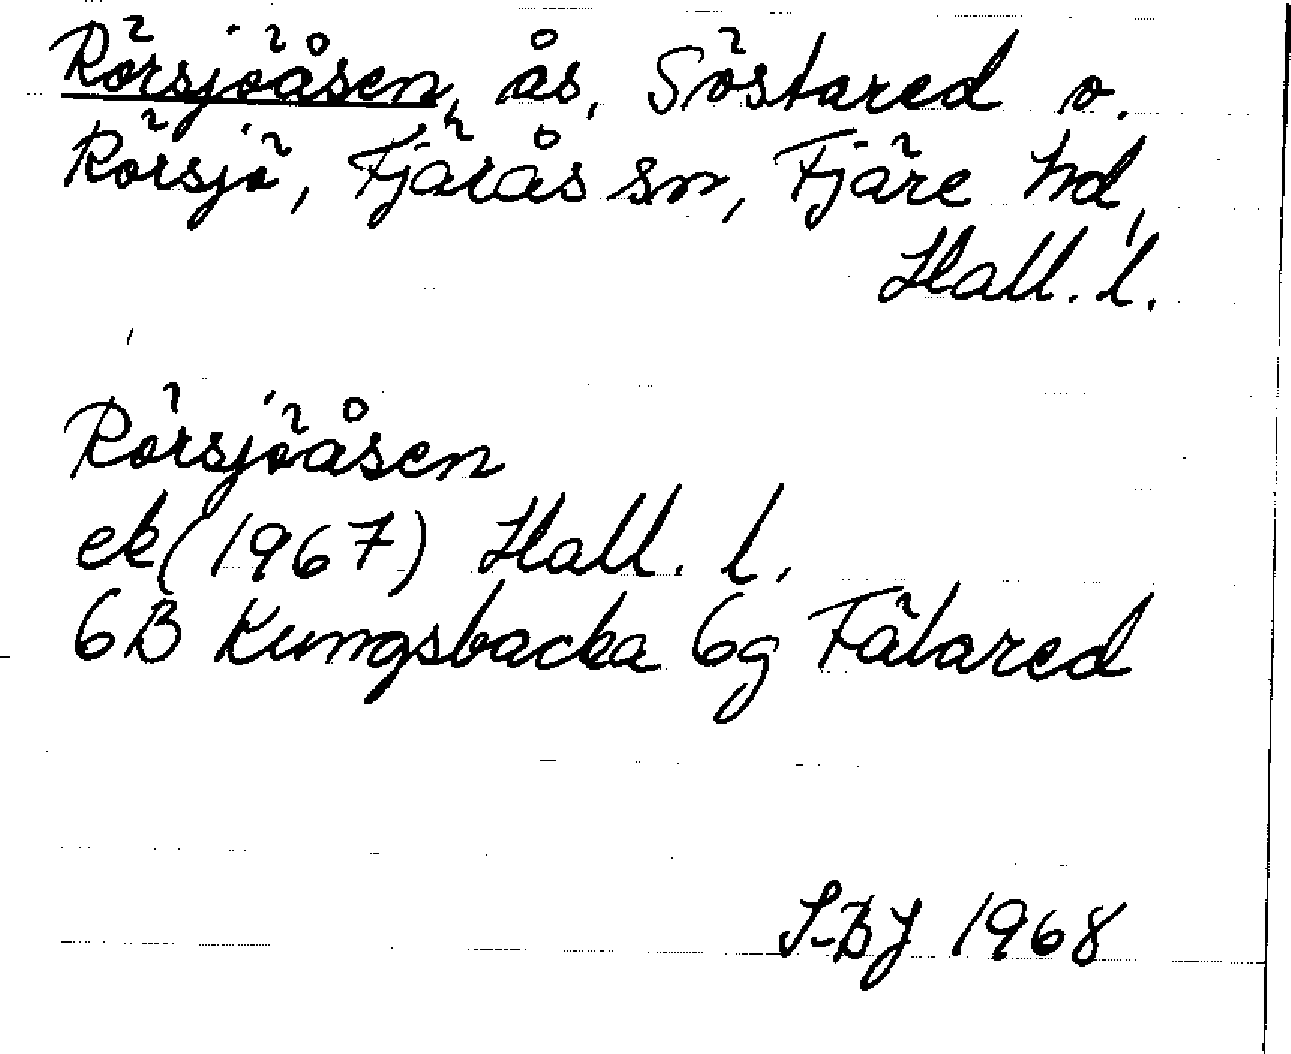 Rörsjöåsen, ås, Söstared o.
Rörsjö, Fjärås sn, Fjäre hd,
Hall. l.
Rörsjöåsen
ek (1967) Hall. l.
6B Kungsbacka 6g Fälared
S-BJ 1968